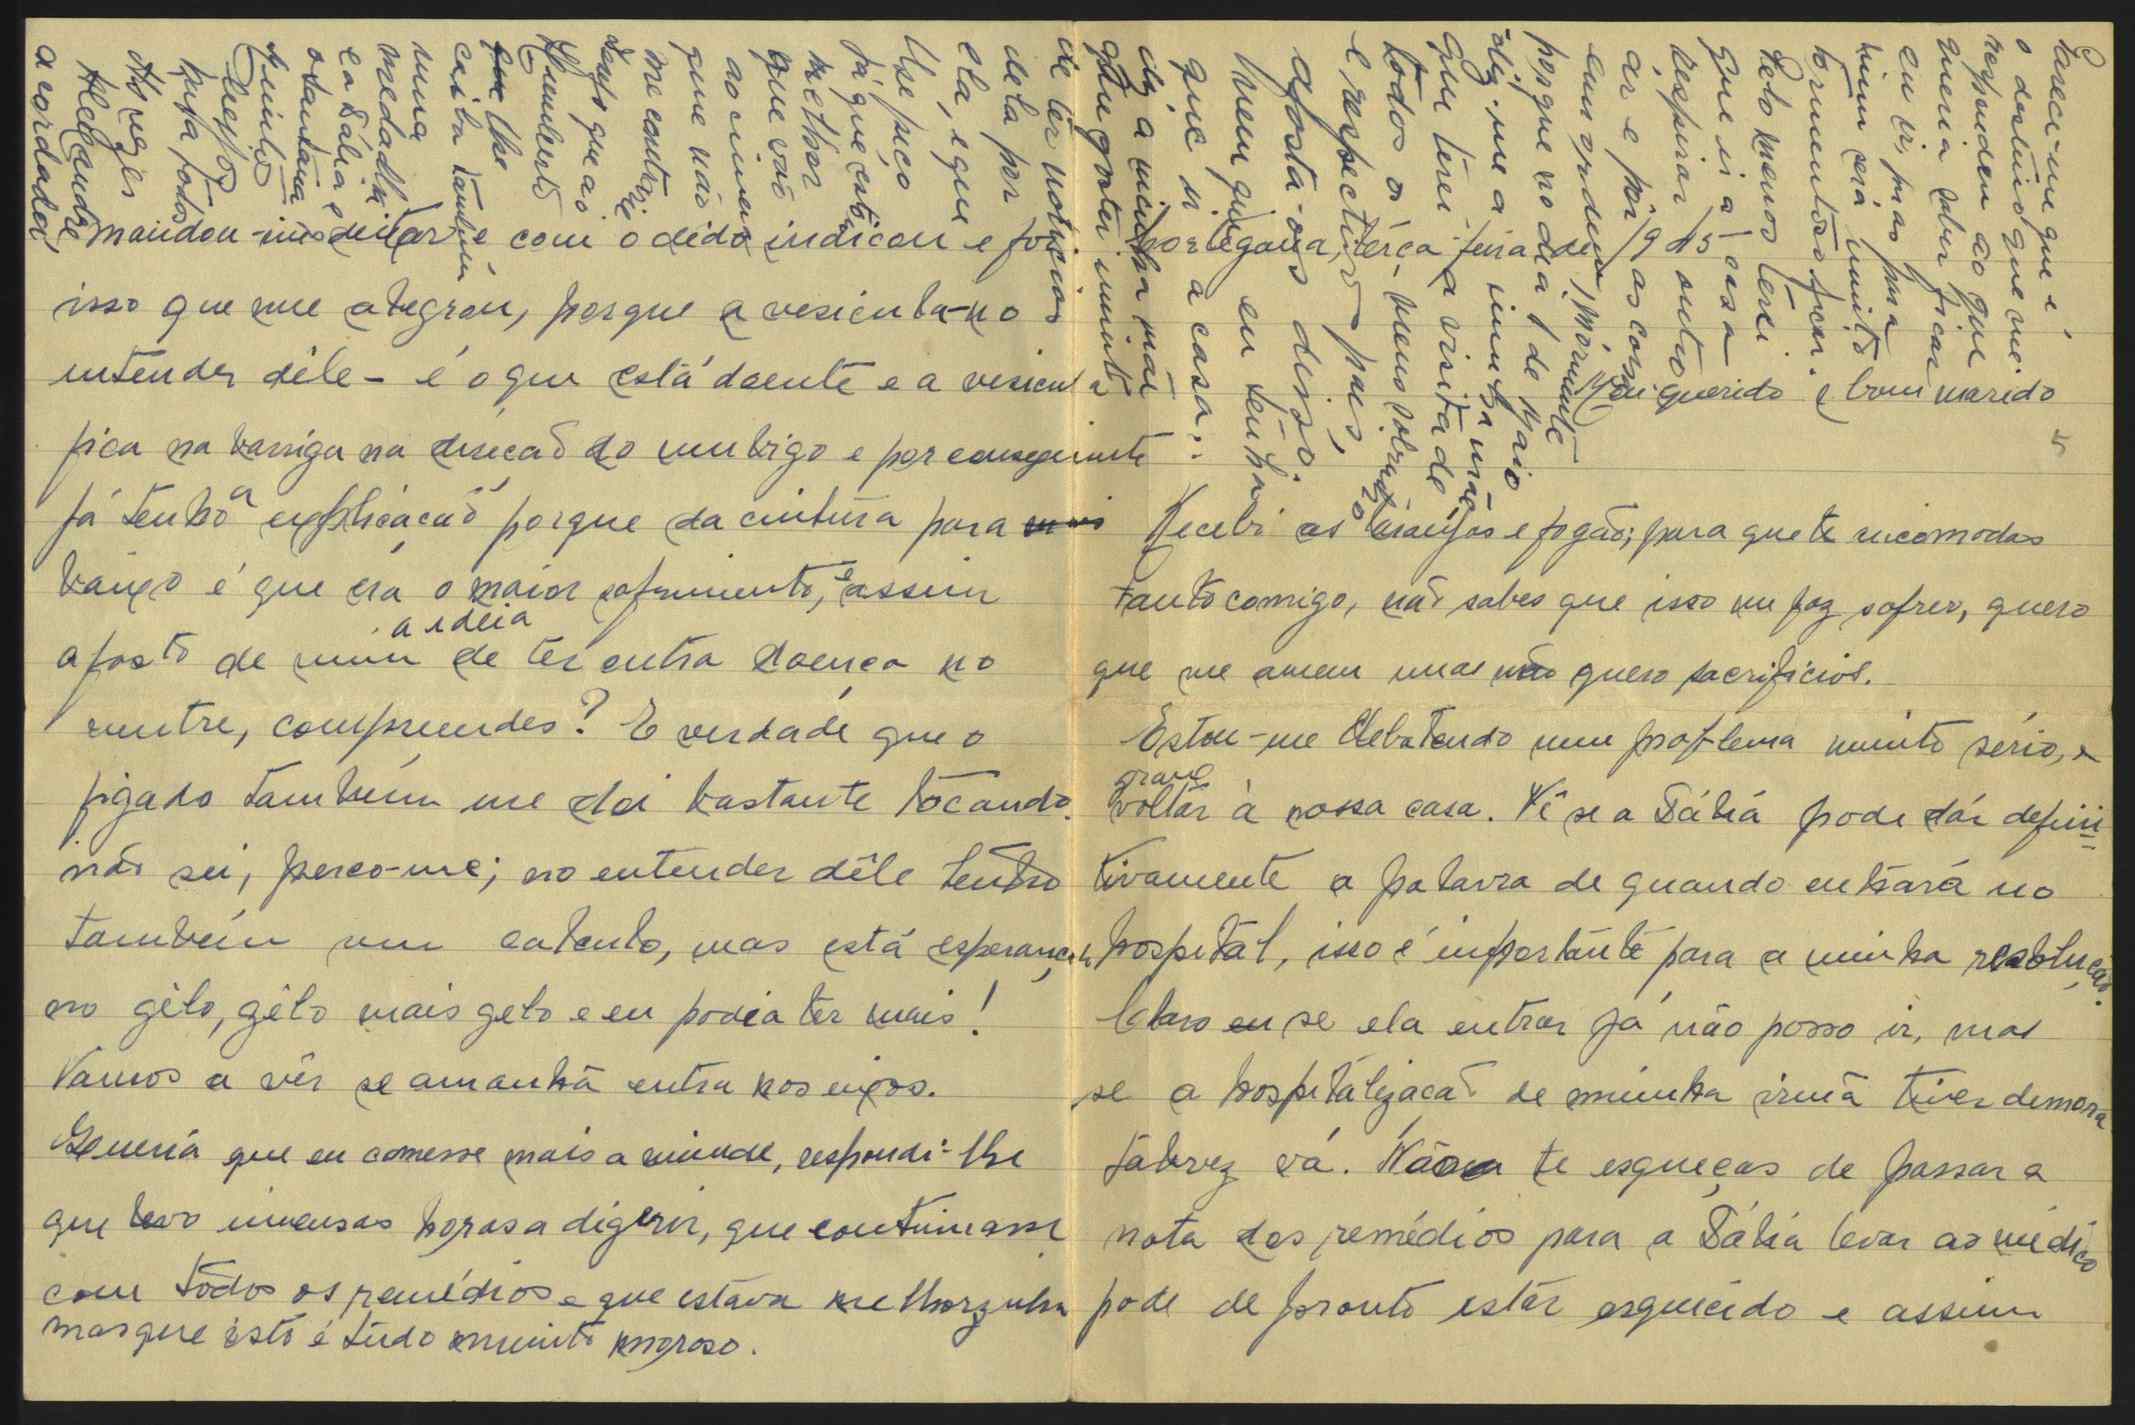 Portegaia, têrça-feira de 19 15
Meu querido e bom marido
Recebi as laranjas e fogão; para que te incomodas
tanto comigo, não sabes que isso me faz sofrer, quero
que me amem mas não quero sacrificios.
Estou-me debatendo num problema muito sério, e
grave
voltar à nossa casa. Vê se a Dália pode dár defini
tivamente a palavra de quando entrará no
hospital, isso é importante para a minha resolução.
Claro eu se ela entrar já não posso ir, mas
se a hospitalização de minha irmã tiver demora
talvez vá. Não te esqueças de passar a
nota dos remédios para a Dália levar ao médico
pode de pronto estár esquecido e assim
mandou-me deitar e com o dedo indicou e foi
isso que me alegrou, porque a vesicula-no
entender dêle- é o que está doente e a vesicula
fica na barriga na direcão do umbigo e por conseguinte
já tenho a explicação porque da cintura para
baixo é que era o maior sofrimento, e assim
a ideia
afasto de mim de ter outra doença no
ventre, compreendes? E verdade que o
figado também me doi bastante tocando.
não sei, perco-me; no entender dêle tenho
também um calculo, mas está esperançado
no gêlo, gêlo mais gelo e eu podia ter mais!
Vamos a vêr se amanhã entra nos eixos.
Queria que eu comesse mais a miude, respondi-lhe
que levo imensas horas a digerir, que continuasse
com tôdos os remédios e que estava melhorzinha
mas que isto é tudo muito moroso.
Parece-me que é
o destino que me
respondeu ao que
queria saber ficar
eu ir, mas para
mim será muito
tormentoso ficar.
Pelo menos terei
que ir a casa
respirar outro
ar e pôr as coisas
em ordem, mórmente
porque no dia 1 de Maio
diz-me a minha irmã
que terei a visita de
todos os meus sobrinhos
e respectivos pais,
afasta-os disso.
Nem que eu tenha
que ir a casa.
diz a minha mãe
que gostei imenso
de ter noticias
dela por
ela, e que
lhe peço
já que está
melhor
que vão
ao cinema
que não
me contrarie
Tanto que ao
Humberto
que lhe
caiba também
uma
medalha
e a Dália e
o Santana
Muitos
Beijos
para todos
Ás vezes
Alexandre
acordada